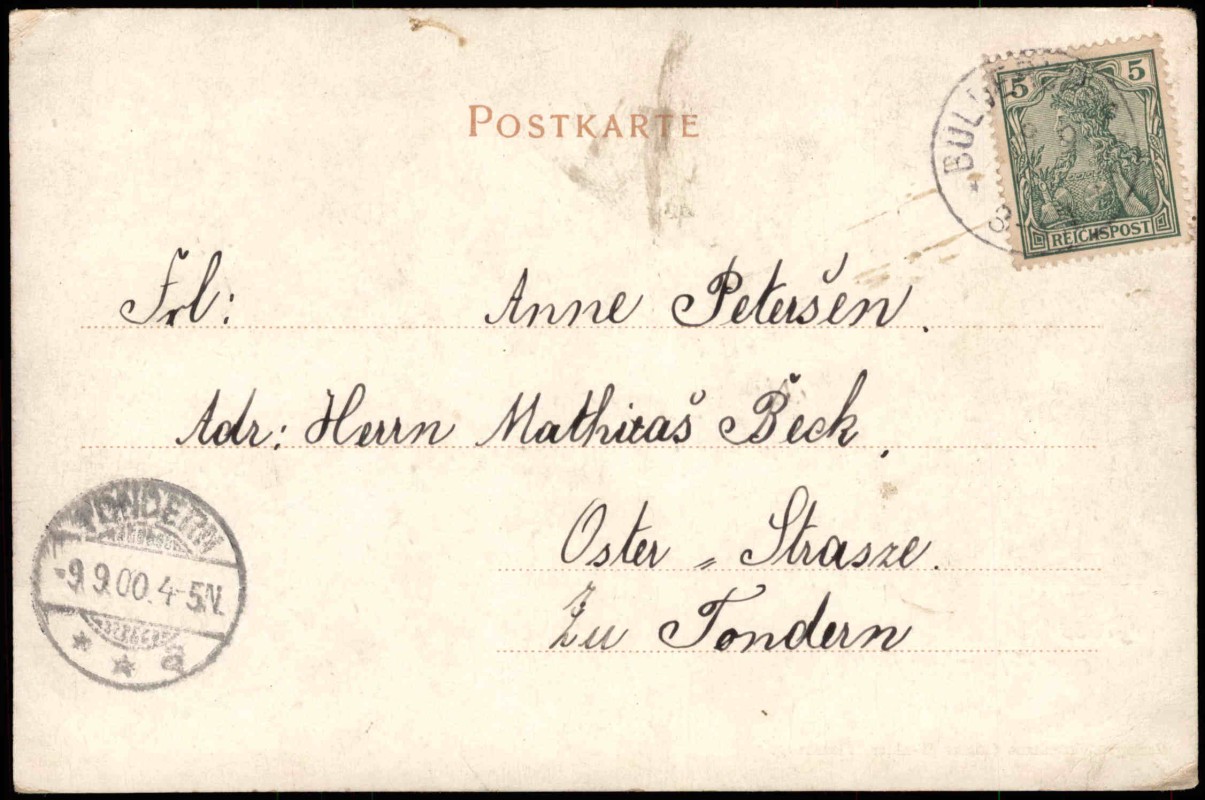 POSTKARTE
5 5
REICHSPOST
Frl: Anne Petersen.
Adr: Herrn Mathias Beck,
Oster = Strasze.
Zu Tondern
TONDERN
9.9.00.4-5N.
* * a